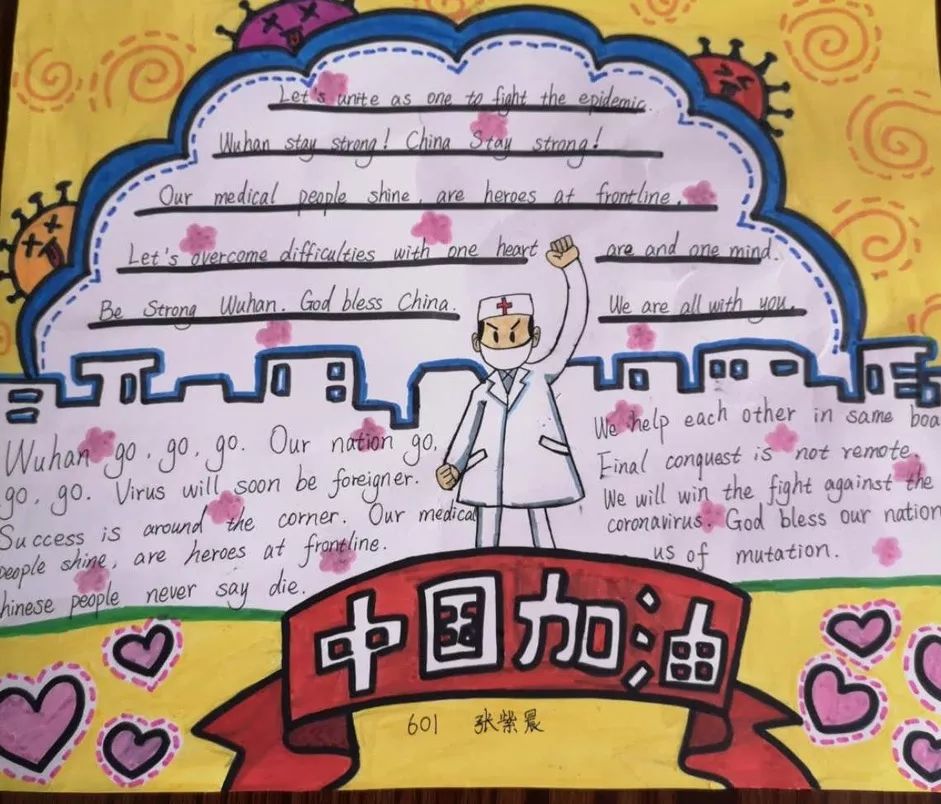 Let's unite as one to fight the epidemic.
Wuhan stay strong! China Stay strong!
Our medical people shine, are heroes at frontline.
Let's overcome difficulties with one heart are and one mind.
Be Strong Wuhan. God bless China. We are all with you.
Wuhan go, go, go. Our nation go,
go, go. Virus will soon be foreigner.
Success is around the corner. Our medical
people shine, are heroes at frontline.
hinese people never say die.
We help each other in same boa
Final conquest is not remote.
We will win the fight against the
coronavirus. God bless our nation
us of mutation.
中国加油
601 张紫晨